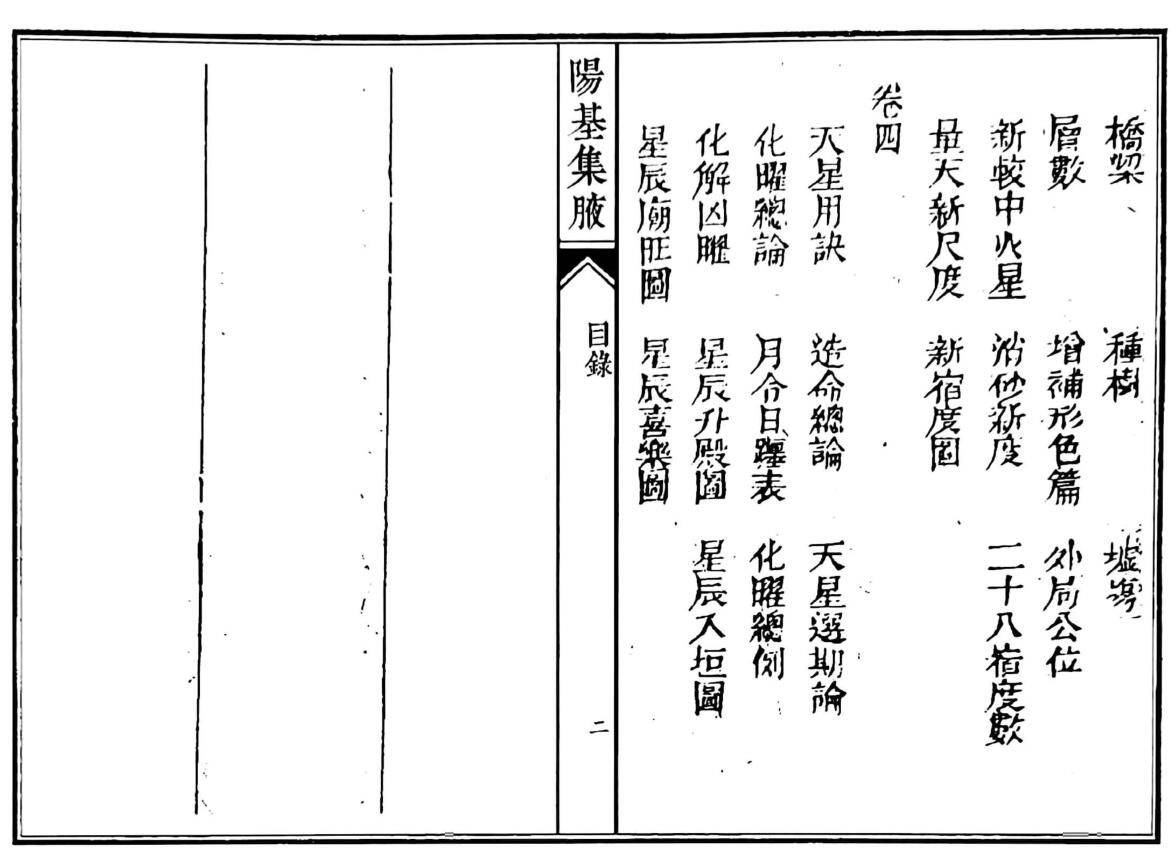 橋梁 種樹 墟
層數 增補形色篇 外局公位
新較中火星 消砂新度 二十八宿度數
量天新尺度 新宿度圖
卷四
天星用訣 造命總論 天星選期論
化曜總論 月令日躔表 化曜總例
化解凶曜 星辰升殿圖 星辰入垣圖
星辰廟旺圖 星辰喜樂圖
陽基集腋
目錄
二